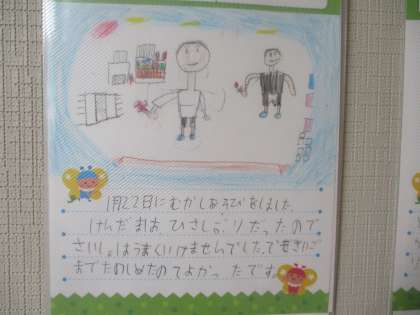 1月22日にむかしあそびをしました。
けんだまわ ひさしぶりだったので
さいしょはうまくいけませんでした。でもさいご
までたのしめたのてよかったです。